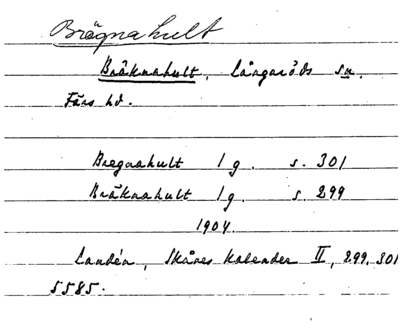 Brägnahult
Bräknahult, Långaröds sn.
Färs hd.
Bregnahult 1 g. s. 301
Bräknahult 1g. s. 299
1904
Landén, Skånes kalender II, 299, 301
5585.